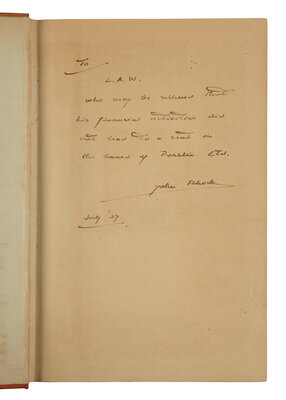 To
L. A. W.
who may be relieved that
his financial activities did
not lead to a seat on
the board of Ltd.
John
July '37